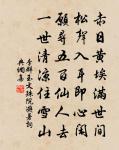 赤日黄埃满世间
松声入耳即心闲
愿寻五百仙人去
一世清凉住雪山
李群玉文殊院避暑诗
典樨书